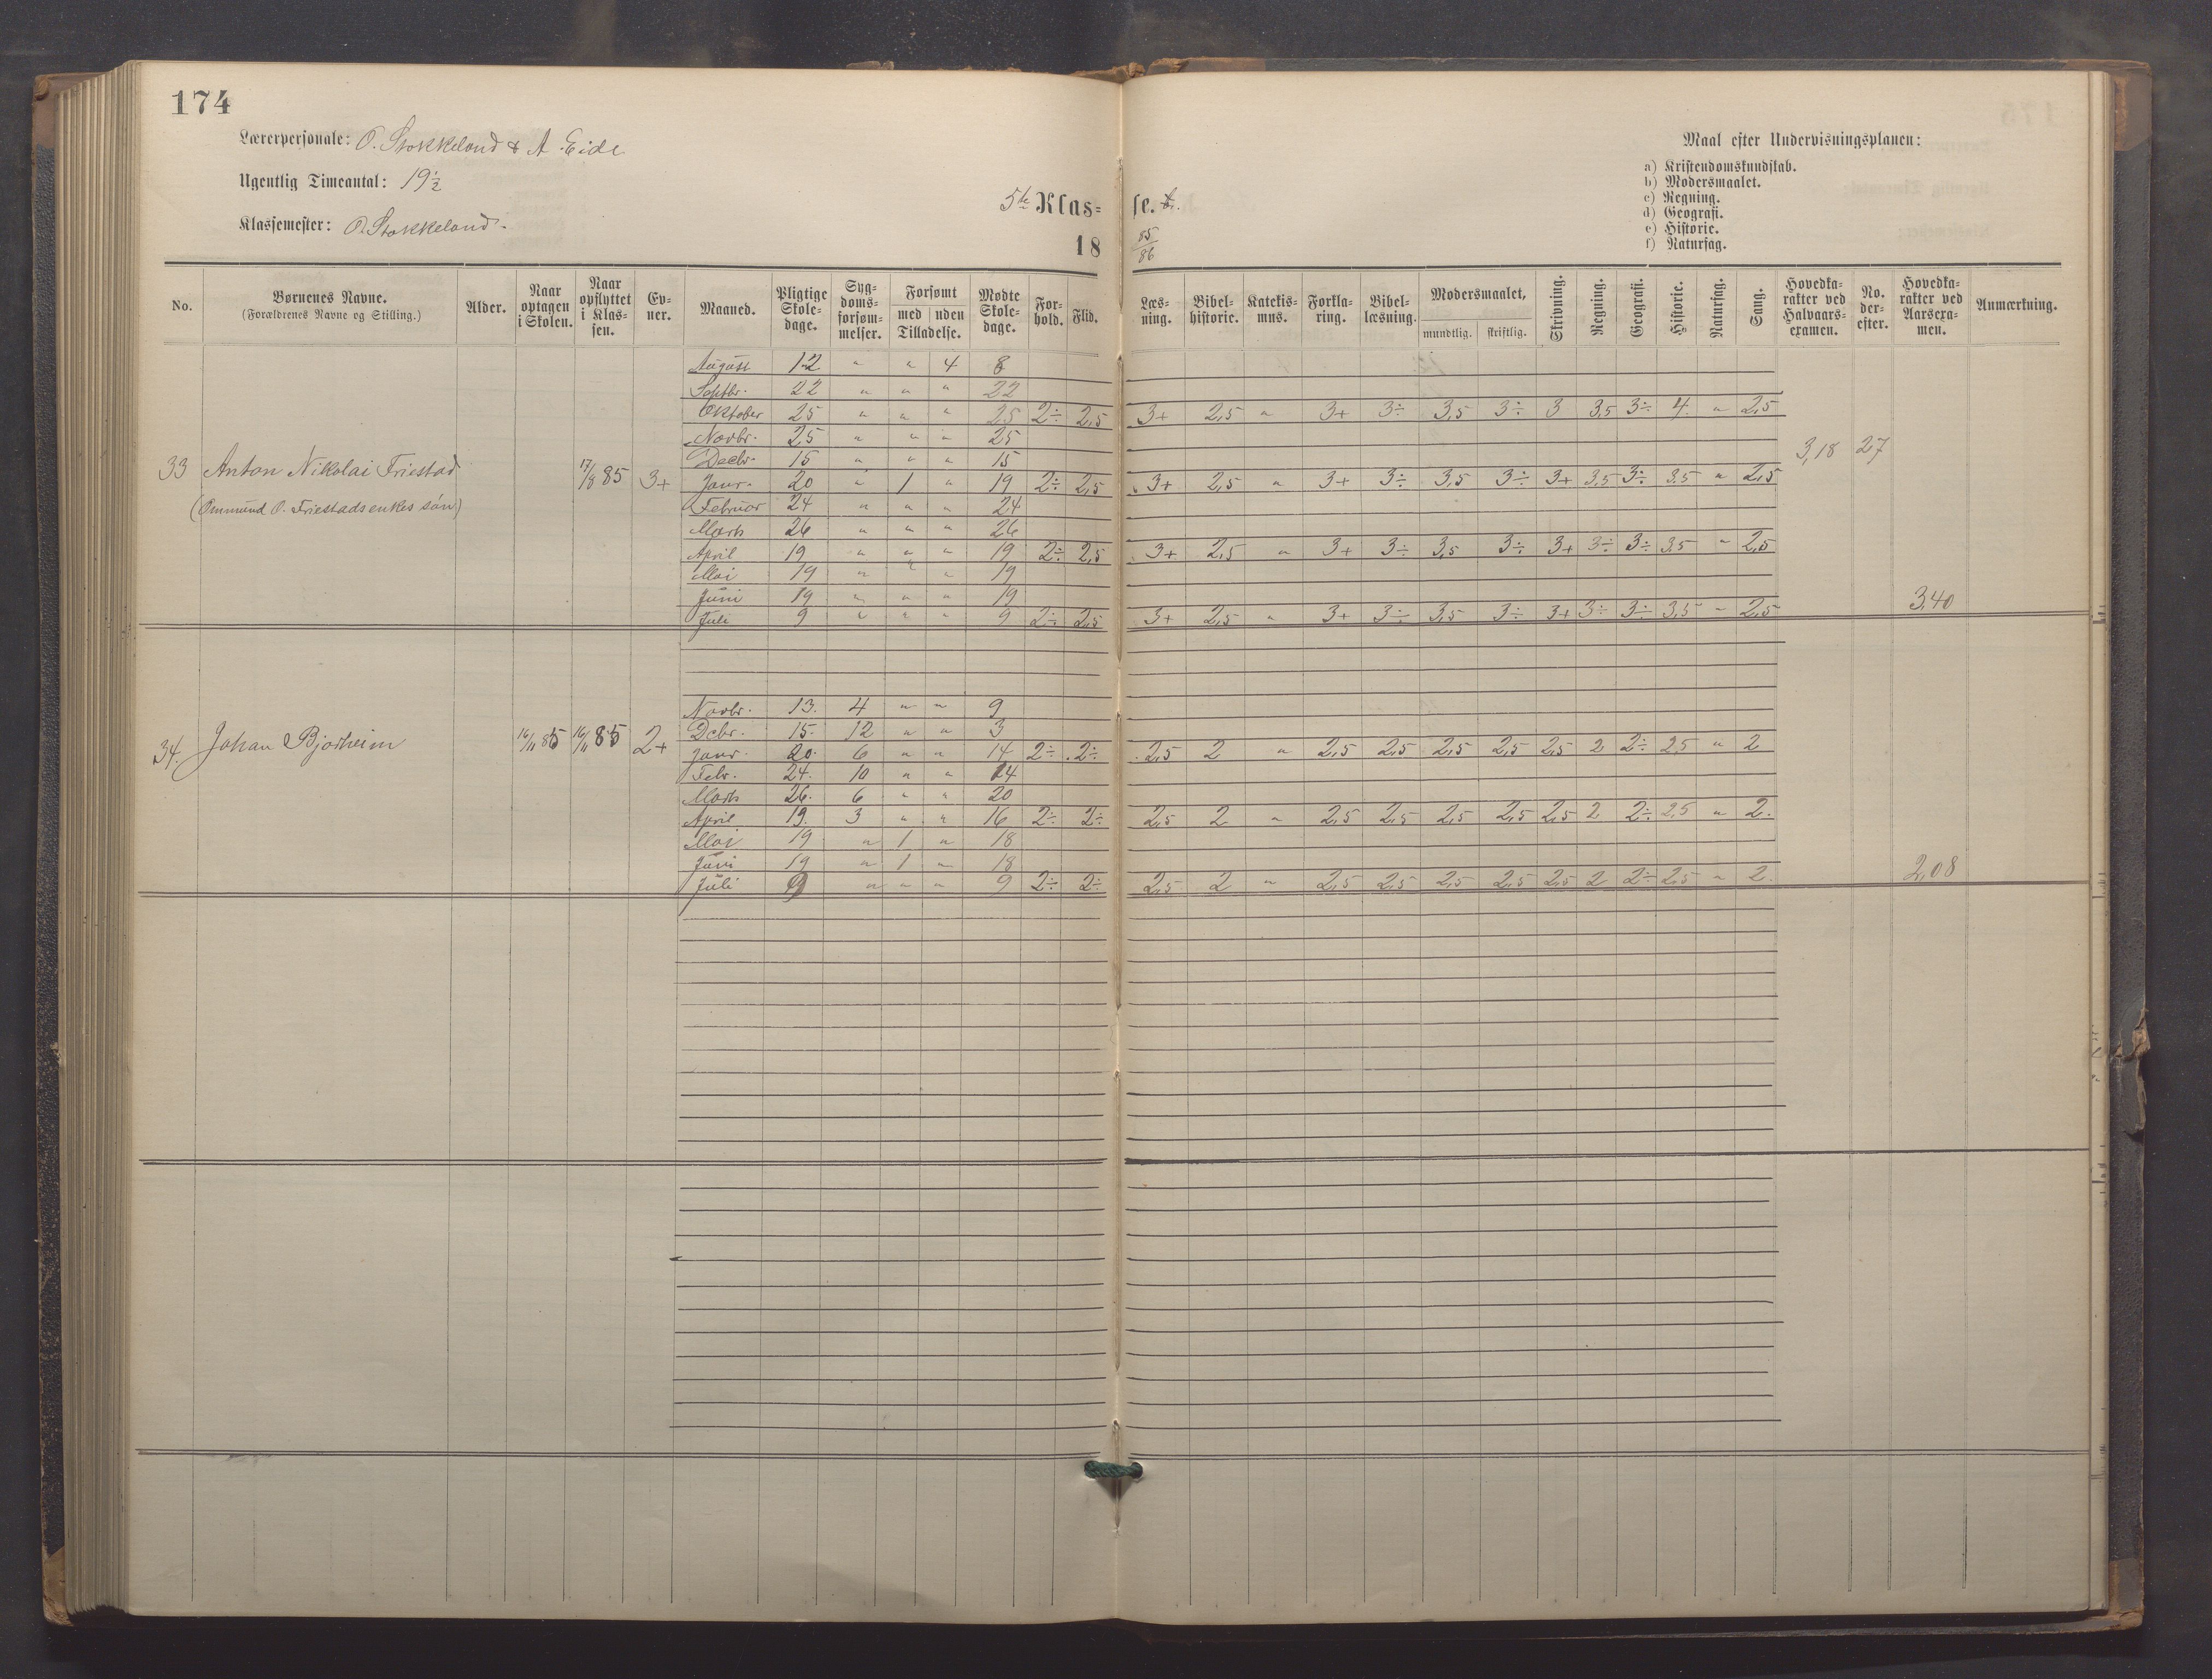 174
Lærerpersonale: O. Stokkeland & A. Eide
Ugentlig Timeantal: 19½
Klassemester: O. Stokkeland.
5te Klas= se. b.
18 85/86
Maal efter Undervisningsplanen:
a) Kristendomskundskab.
b) Modersmaalet.
c) Regning.
d) Geografi.
e) Historie.
f) Naturfag.
No. | Børnenes Navne. (Forældrenes Navne og Stilling.) | Alder. | Naar optagen i Skolen. | Naar opflyttet i Klas=sen. | Ev=ner. | Maaned. | Pligtige Skole=dage. | Syg=doms=forsøm=melser. | Forsømt med uden Tilladelse. | Mødte Skole=dage. | For=hold. | Flid. | Læs=ning. | Bibel=historie. | Katekis=mus. | Forkla=ring. | Bibel=læsning. | Modersmaalet, mundtlig. skriftlig. | Skrivning. | Regning. | Geografi. | Historie. | Naturfag. | Sang. | Hovedka=rakter ved Halvaars=examen. | No. der=efter. | Hovedka=rakter ved Aarsexa=men. | Anmærkning.
August 12 " " 4 8
Septbr. 22 " " " 22
Oktober 25 " " " 25 2÷ 2,5 3+ 2,5 " 3+ 3÷ 3,5 3÷ 3 3,5 3÷ 4 " 2,5
Novbr. 25 " " " 25
Decbr. 15 " " " 15 3,18 27
33 Anton Nikolai Friestad 17/8 85 3+ Janr. 20 " 1 " 19 2÷ 2,5 3+ 2,5 " 3+ 3÷ 3,5 3÷ 3+ 3,5 3÷ 3,5 " 2,5
(Ommund O. Friestads enkes søn) Februar 24 " " " 24
Marts 26 " " " 26
April 19 " " " 19 2÷ 2,5 3+ 2,5 " 3+ 3÷ 3,5 3÷ 3+ 3÷ 3÷ 3,5 " 2,5
Mai 19 " " " 19
Juni 19 " " " 19 3,40
Juli 9 " " " 9 2÷ 2,5 3+ 2,5 " 3+ 3÷ 3,5 3÷ 3+ 3÷ 3÷ 3,5 " 2,5
Novbr. 13. 4 " " 9
Dcbr. 15. 12 " " 3
34. Johan Bjorheim 16/11 85 16/11 85 2+ Janr. 20. 6 " " 14 2÷ 2÷ 2,5 2 " 2,5 2,5 2,5 2,5 2,5 2 2÷ 2,5 " 2
Febr. 24. 10 " " 14
Marts 26. 6 " " 20
April 19. 3 " " 16 2÷ 2÷ 2,5 2 " 2,5 2,5 2,5 2,5 2,5 2 2÷ 2,5 " 2.
Mai 19 " 1 " 18
Juni 19 " 1 " 18 2,08
Juli 9 " " " 9 2÷ 2÷ 2,5 2 " 2,5 2,5 2,5 2,5 2,5 2 2÷ 2,5 " 2.